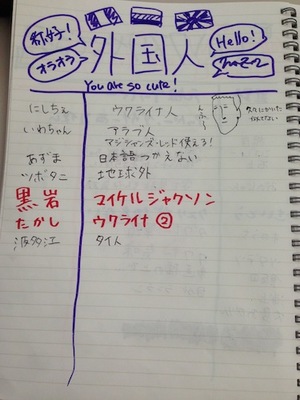 你好!
外国人
Hello!
オラオラ
You are so cute!
にしちぇ ウクライナ人
いわちゃん アラブ人
マジシャンズ・レッド使えろ!
あずま 日本語つかえない
ツボタニ 地球外
黒岩 マイケルジャクソン
たかし ウクライナ②
波多江 タイ人